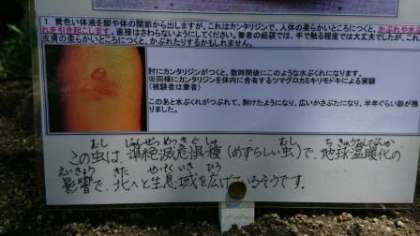 1 黄色い体液を脚や体の関節から出しますが、これはカンタリジンで、人体の柔らかいところにつくと、かぶれや水ぶく
れを引き起こします。直接はさわらないようにしてください。筆者の経験では、手で触る程度では大丈夫でしたが、
皮膚の柔らかいところにつくと、かぶれたりするかもしれません。
肘にカンタリジンがつくと、数時間後にこのような水ぶくれになります。
※同様にカンタリジンを体内に含有するツマグロカミキリモドキによる実験
(被験者は筆者)
このあと水ぶくれがつぶれて、剥けたようになり、広いかさぶたになり、半年ぐらい跡が残
りました。
この虫は、準絶滅危惧種(めずらしい虫)で、地球温暖化の
影響で、北へと生息域を広げているそうです。